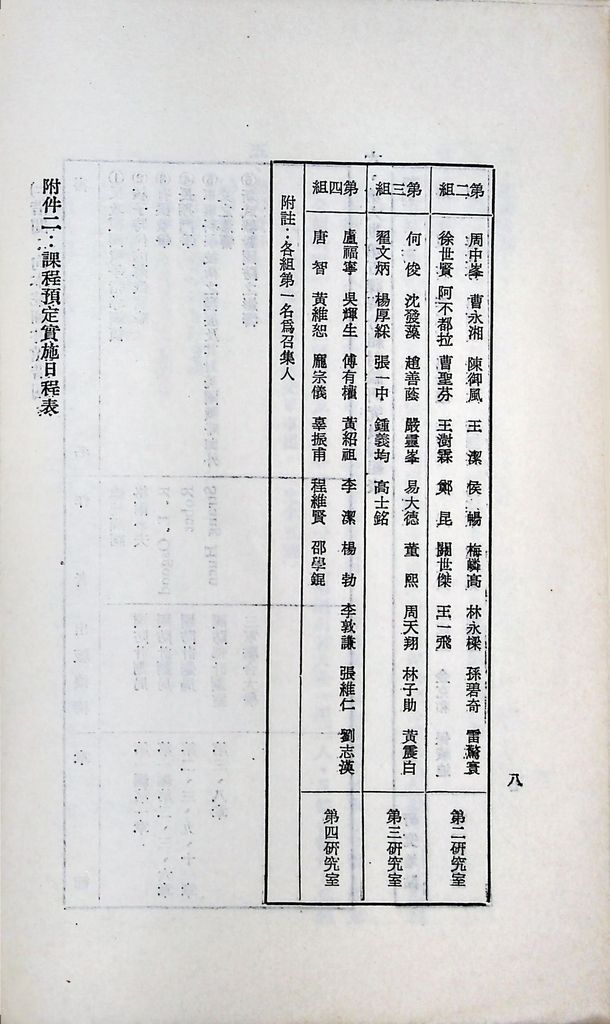 第二組
周中峯 曹永湘 陳御風 王潔 侯暢 梅麟高 林永樑 孫碧奇 雷驚寰
徐世賢 阿不都拉 曹聖芬 王澍霖 鄭昆 關世傑 王一飛
第二研究室
第三組
何俊 沈發藻 趙善蔭 嚴靈峯 易大德 董熙 周天翔 林子勛 黃震白
翟文炳 楊厚綵 張一中 鍾義均 高士銘
第三研究室
第四組
盧福寧 吳輝生 傅有權 黃紹祖 李潔 楊勃 李敦謙 張維仁 劉志漢
唐智 黃維恕 龐宗儀 辜振甫 程維賢 邵學錕
第四研究室
附註：各組第一名為召集人
附件二：課程預定實施日程表
八